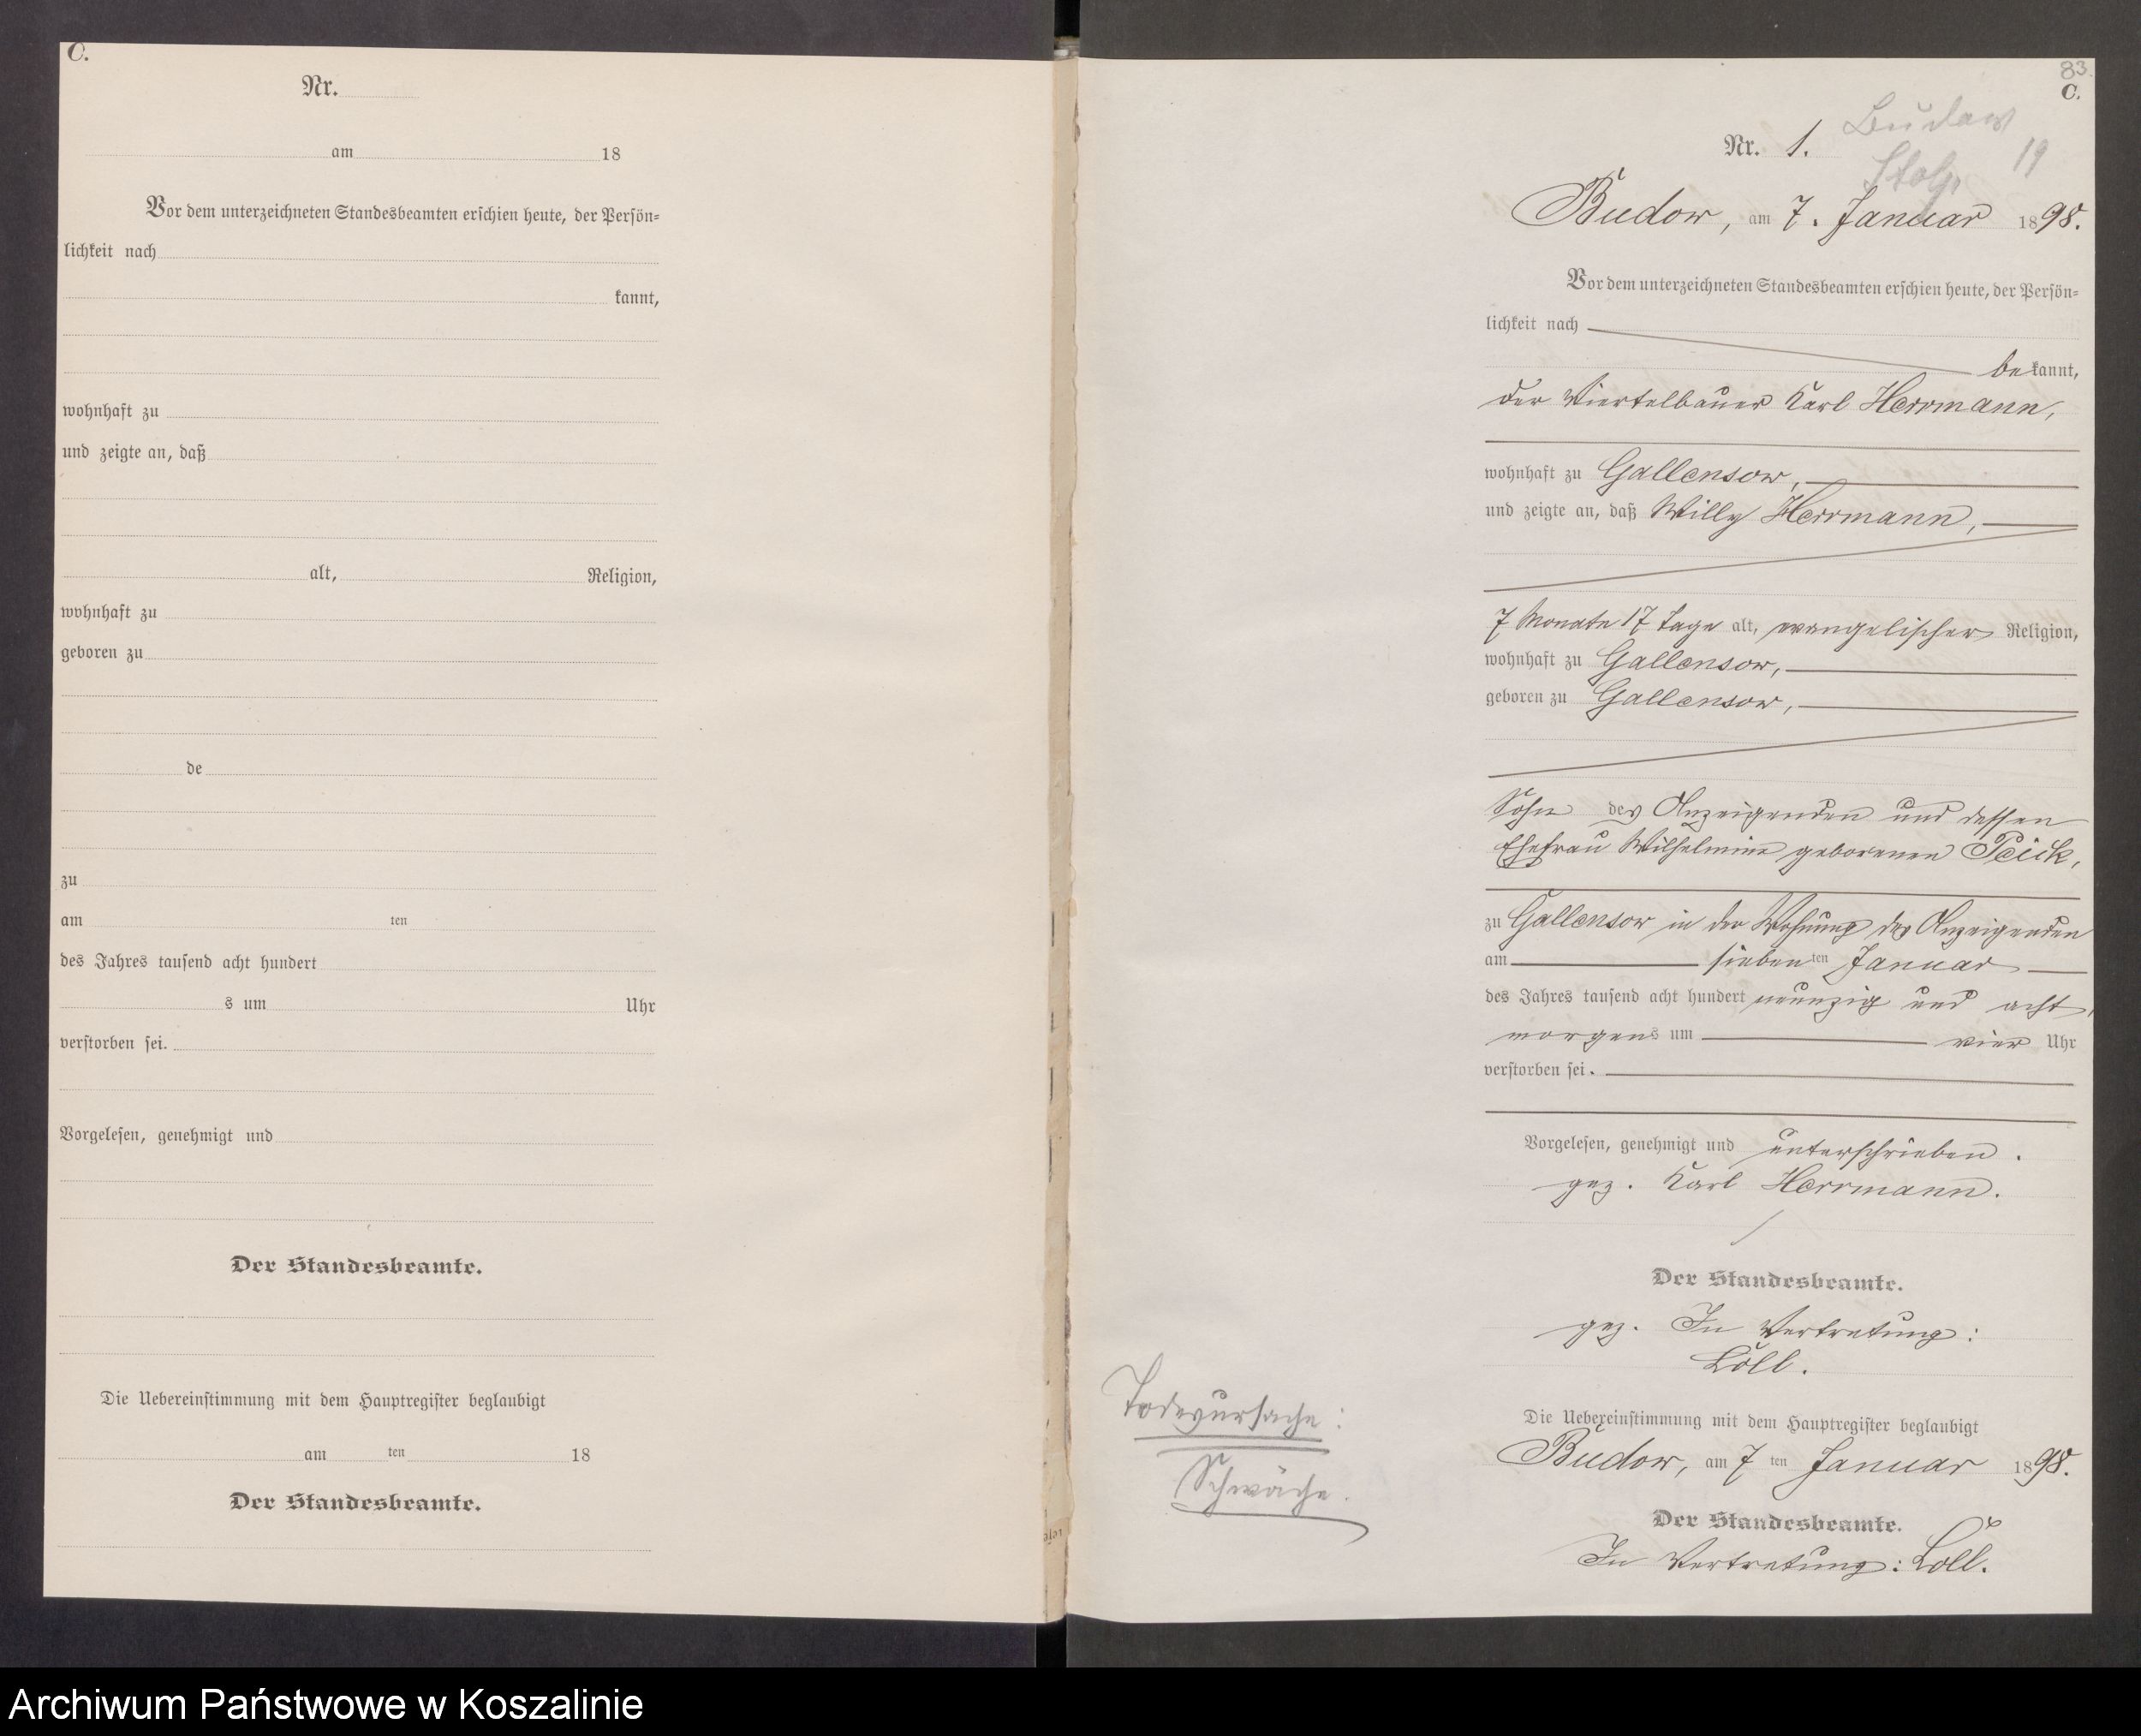 C.
Nr.
am 18
Vor dem unterzeichneten Standesbeamten erschien heute, der Persön=
lichkeit nach
kannt,
wohnhaft zu
und zeigte an, daß
alt, Religion,
wohnhaft zu
geboren zu
de
zu
am ten
des Jahres tausend acht hundert
s um Uhr
verstorben sei.
Vorgelesen, genehmigt und
Der Standesbeamte.
Die Uebereinstimmung mit dem Hauptregister beglaubigt
am ten 18
Der Standesbeamte.
83.
C.
Budow
Nr. 1.
Stolp 19
Budow, am 7. Januar 1898.
Vor dem unterzeichneten Standesbeamten erschien heute, der Persön=
lichkeit nach
bekannt,
der Viertelbauer Karl Herrmann,
wohnhaft zu Gallensow,
und zeigte an, daß Willy Herrmann,
7 Monate 17 Tage alt, evangelischer Religion,
wohnhaft zu Gallensow,
geboren zu Gallensow,
Sohn des Anzeigenden und dessen
Ehefrau Wilhelmine geborenen Peick,
zu Gallensow in der Wohnung des Anzeigenden
am siebenten Januar
des Jahres tausend acht hundert neunzig und acht,
morgens um vier Uhr
verstorben sei.
Vorgelesen, genehmigt und unterschrieben.
gez. Karl Herrmann.
Der Standesbeamte.
gez. In Vertretung:
Loll.
Todesursache:
Schwäche.
Die Uebereinstimmung mit dem Hauptregister beglaubigt
Budow, am 7 ten Januar 1898.
Der Standesbeamte.
In Vertretung: Loll.
Archiwum Państwowe w Koszalinie